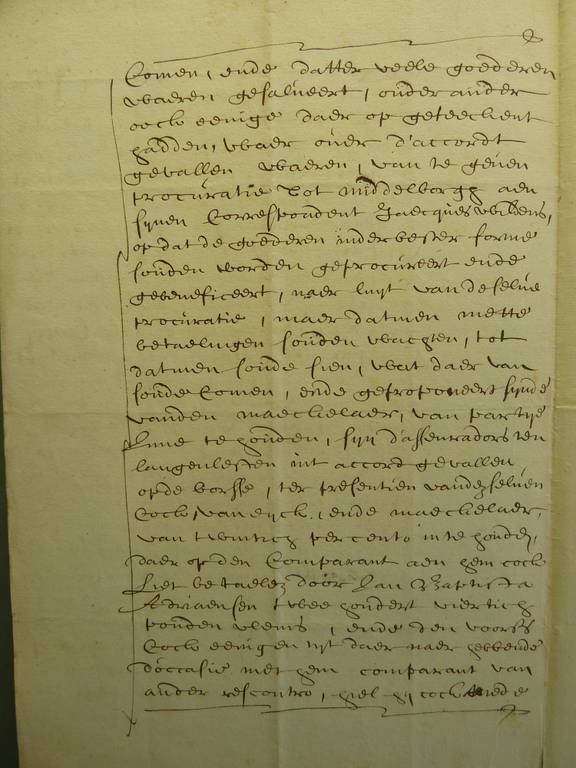 Comen, ende datter veele goederen
waeren gesalueert, onder ander
oock eenige daer op geteeckent
hadden, waer ouer d'accordt
gevallen waeren, van te geuen
procuratie tot middelborgh aen
synen Correspondent Jaecques
op dat de goederen inder bester forme
souden worden geprocureert ende
gebeneficeert, naer luyt van de selue
procuratie, maer datmen mette
betaelingen souden wachten, tot
datmen soude sien, wat daer van
soude Comen, ende geproponeert synde
vanden maeckelaer, van partye
te houden, syn d'assentradors ten
langenlesten int accord gevallen
op de borsse, ter presentien vande selue
Cock, van eyck, ende maeckelaer,
van twintich per cento in te houden,
daer op den Comparant aen hem Cock
Liet betaelen door Jan Baptista
Adriaensen twee hondert viertich
ponden vlems, ende den voorss
Cock eenigen tyt daer naer hebbende
d'occasie met hem comparant van
ander rescontro, hiel hy Cock mede